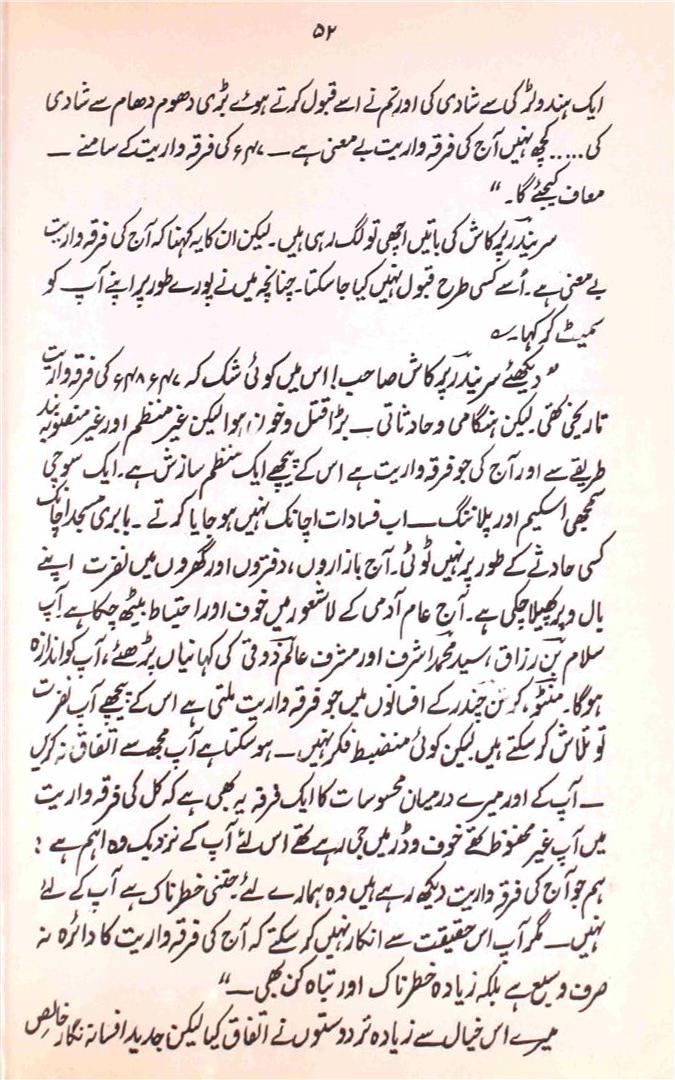 ۵۲
ایک ہندو لڑکی سے شادی کی اور تم نے اسے قبول کرتے ہوئے بڑی دھوم دھام سے شادی
کی ..... کچھ نہیں آج کی فرقہ واریت بے معنی ہے ۔ ۴۷ء کی فرقہ واریت کے سامنے ۔
معاف کیجئے گا۔ "
سریندر پرکاش کی باتیں اچھی تو لگ رہی ہیں۔ لیکن ان کا یہ کہنا کہ آج کی فرقہ واریت
بے معنی ہے۔ اُسے کسی طرح قبول نہیں کیا جا سکتا۔ چنانچہ میں نے پورے طور پر اپنے آپ کو
سمیٹ کر کہا۔
" دیکھئے سریندر پرکاش صاحب! اس میں کوئی شک کہ ۴۷ء ۴۸ء کی فرقہ واریت
تاریخی تھی۔ لیکن ہنگامی و حادثاتی ۔ بڑا قتل و خون ہوا لیکن غیر منظم اور غیر منصوبہ بند
طریقے سے اور آج کی جو فرقہ واریت ہے اس کے پیچھے ایک منظم سازش ہے۔ ایک سوچی
سمجھی اسکیم اور پلاننگ ۔ اب فسادات اچانک نہیں ہو جایا کرتے ۔ بابری مسجد اچانک
کسی حادثے کے طور پر نہیں ٹوٹی۔ آج بازاروں، دفتروں اور گھروں میں نفرت اپنے
بال و پر پھیلا چکی ہے۔ آج عام آدمی کے لاشعور میں خوف اور احتیاط بیٹھ چکا ہے آپ
سلام بن رزاق، سید محمد اشرف اور مشرف عالم ذوقی کی کہانیاں پڑھئے، آپ کو اندازہ
ہوگا۔ منٹو، کرشن چندر کے افسانوں میں جو فرقہ واریت ملتی ہے اس کے پیچھے آپ نفرت
تو تلاش کر سکتے ہیں لیکن کوئی منضبط فکر نہیں ۔ ہو سکتا ہے آپ مجھ سے اتفاق نہ کریں
۔ آپ کے اور میرے درمیان محسوسات کا ایک فرق یہ بھی ہے کہ کل کی فرقہ واریت
میں آپ غیر محفوظ تھے خوف و ڈر میں جی رہے تھے اس لئے آپ کے نزدیک وہ اہم ہے :
ہم جو آج کی فرقہ واریت دیکھ رہے ہیں وہ ہمارے لئے جتنی خطرناک ہے آپ کے لئے
نہیں ۔ مگر آپ اس حقیقت سے انکار نہیں کر سکتے کہ آج کی فرقہ واریت کا دائرہ نہ
صرف وسیع ہے بلکہ زیادہ خطرناک اور تباہ کن بھی ۔"
میرے اس خیال سے زیادہ تر دوستوں نے اتفاق کیا لیکن جدید افسانہ نگار خالص